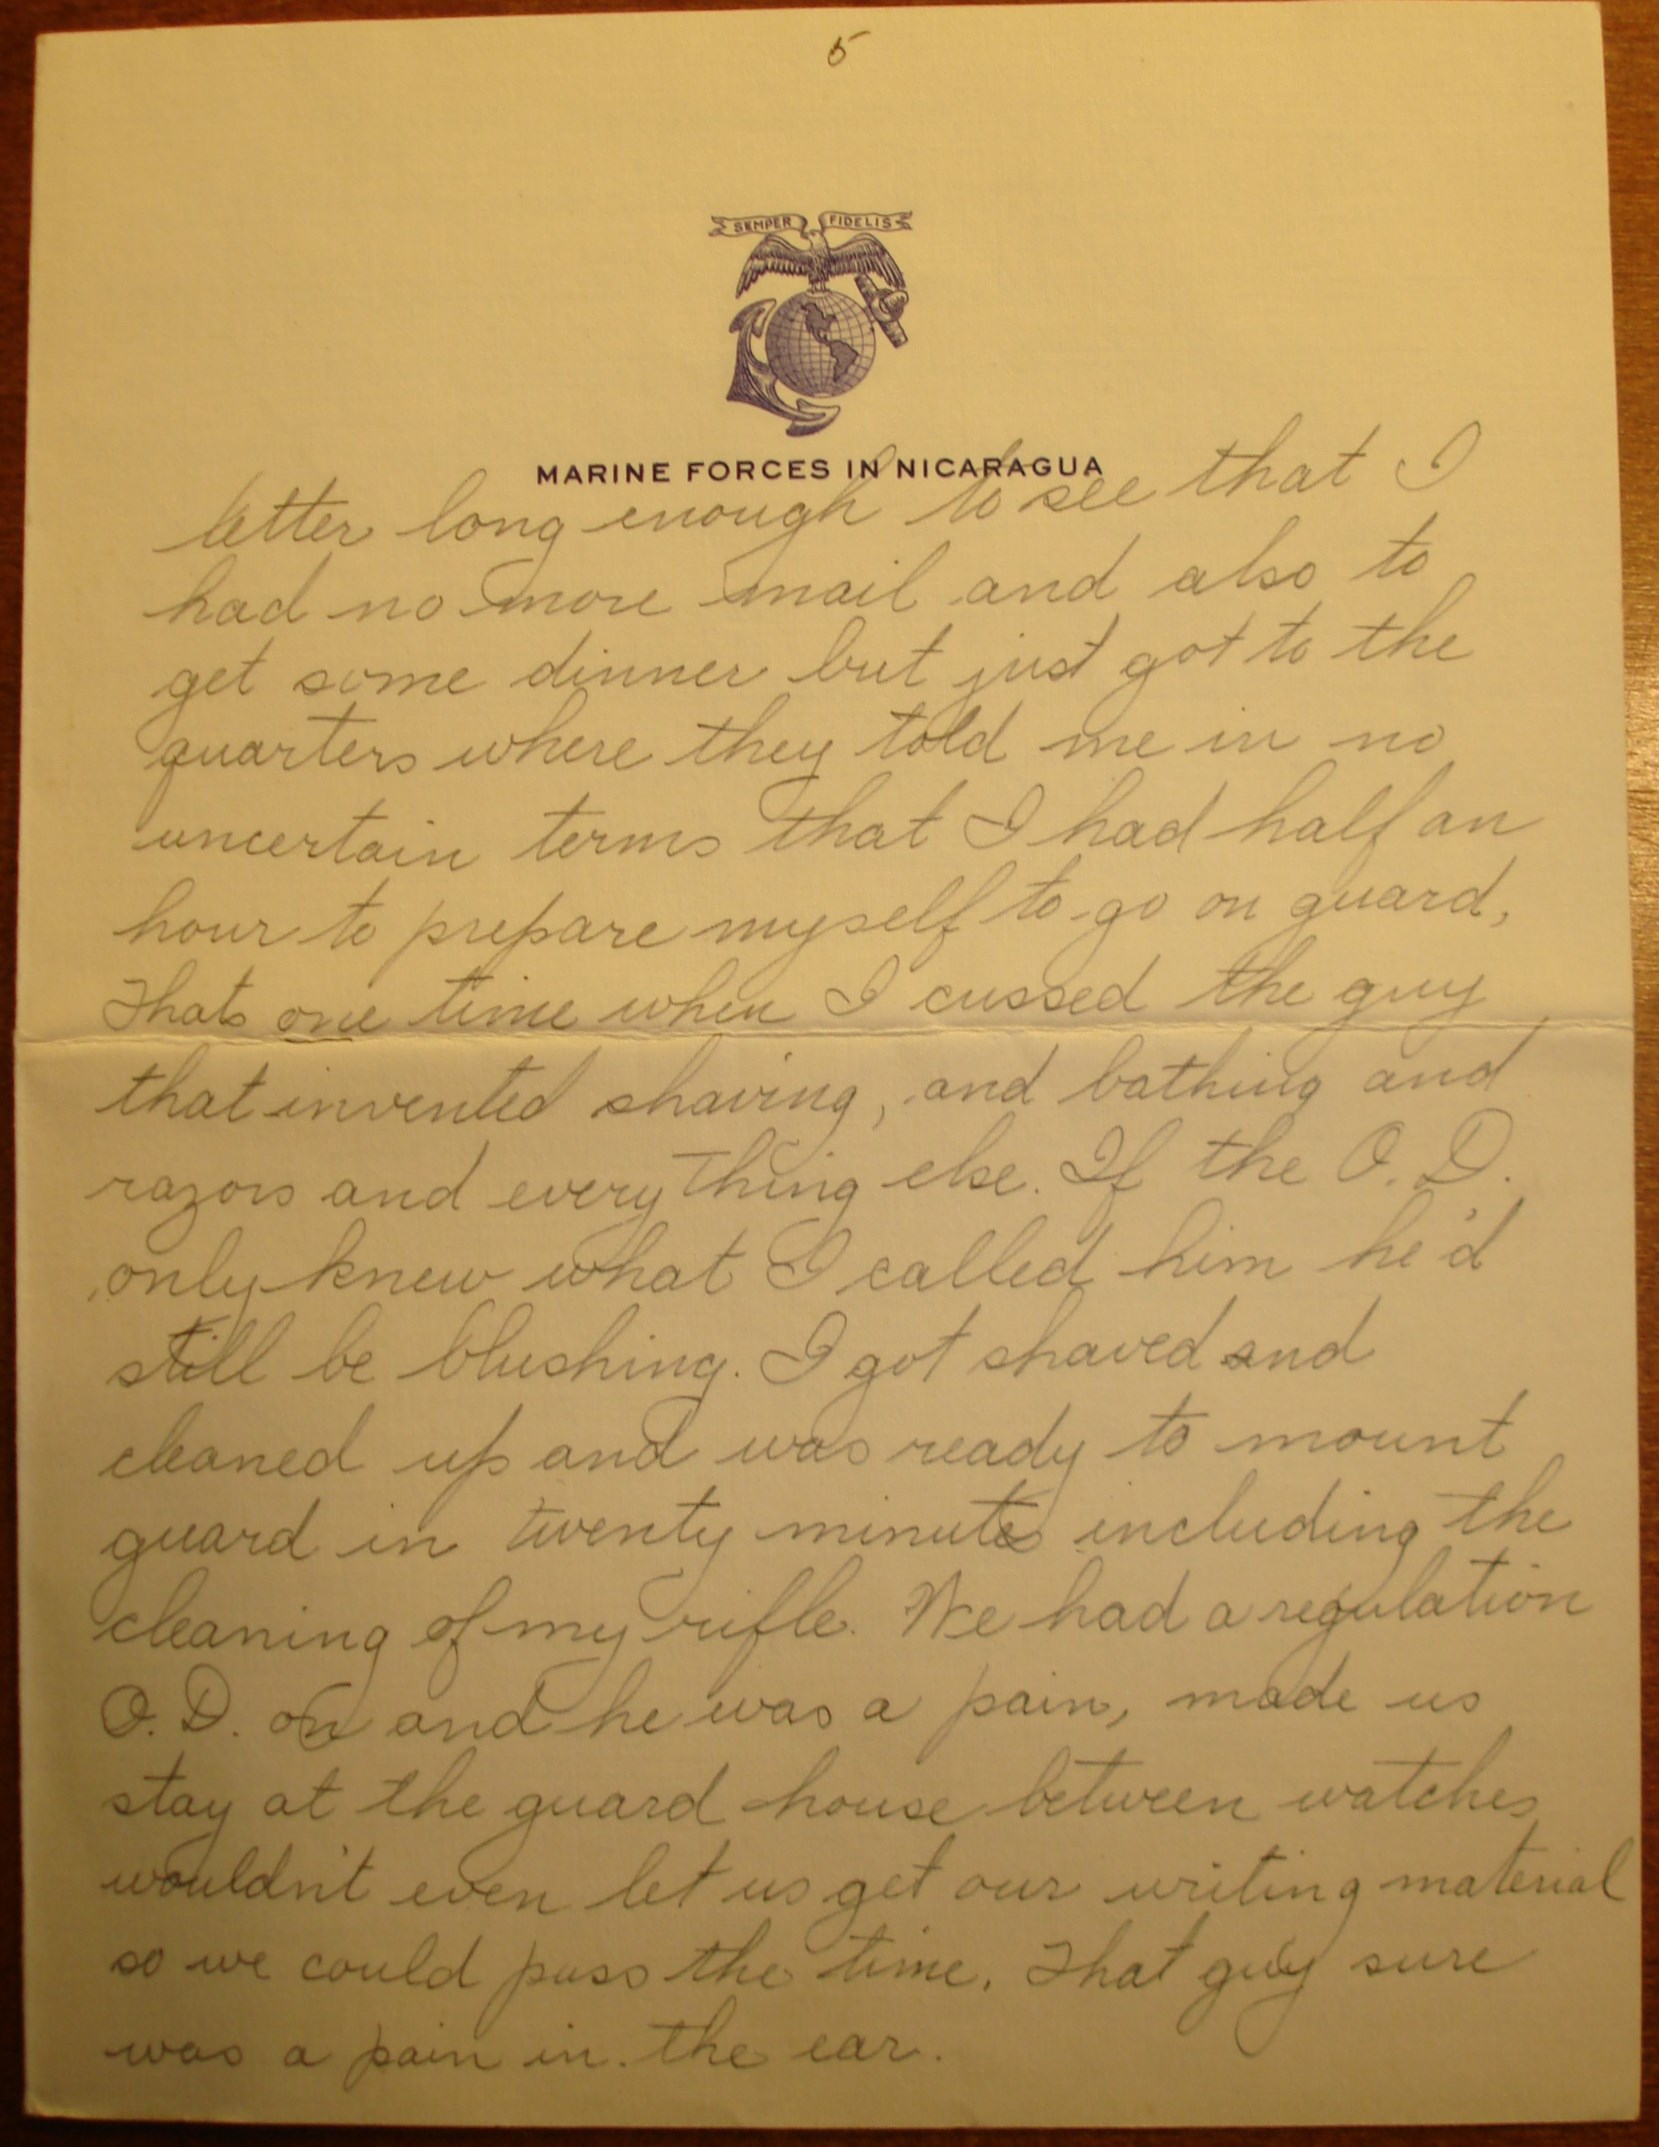 5
SEMPER FIDELIS
MARINE FORCES IN NICARAGUA
letter long enough to see that I
had no more mail and also to
get some dinner but just got to the
quarters where they told me in no
uncertain terms that I had half an
hour to prepare myself to go on guard,
Thats one time when I cussed the guy
that invented shaving, and bathing and
razors and every thing else. If the O. D.
only knew what I called him he'd
still be blushing. I got shaved and
cleaned up and was ready to mount
guard in twenty minutes including the
cleaning of my rifle. We had a regulation
O. D. on and he was a pain, made us
stay at the guard house between watches
wouldn't even let us get our writing material
so we could pass the time. That guy sure
was a pain in the ear.